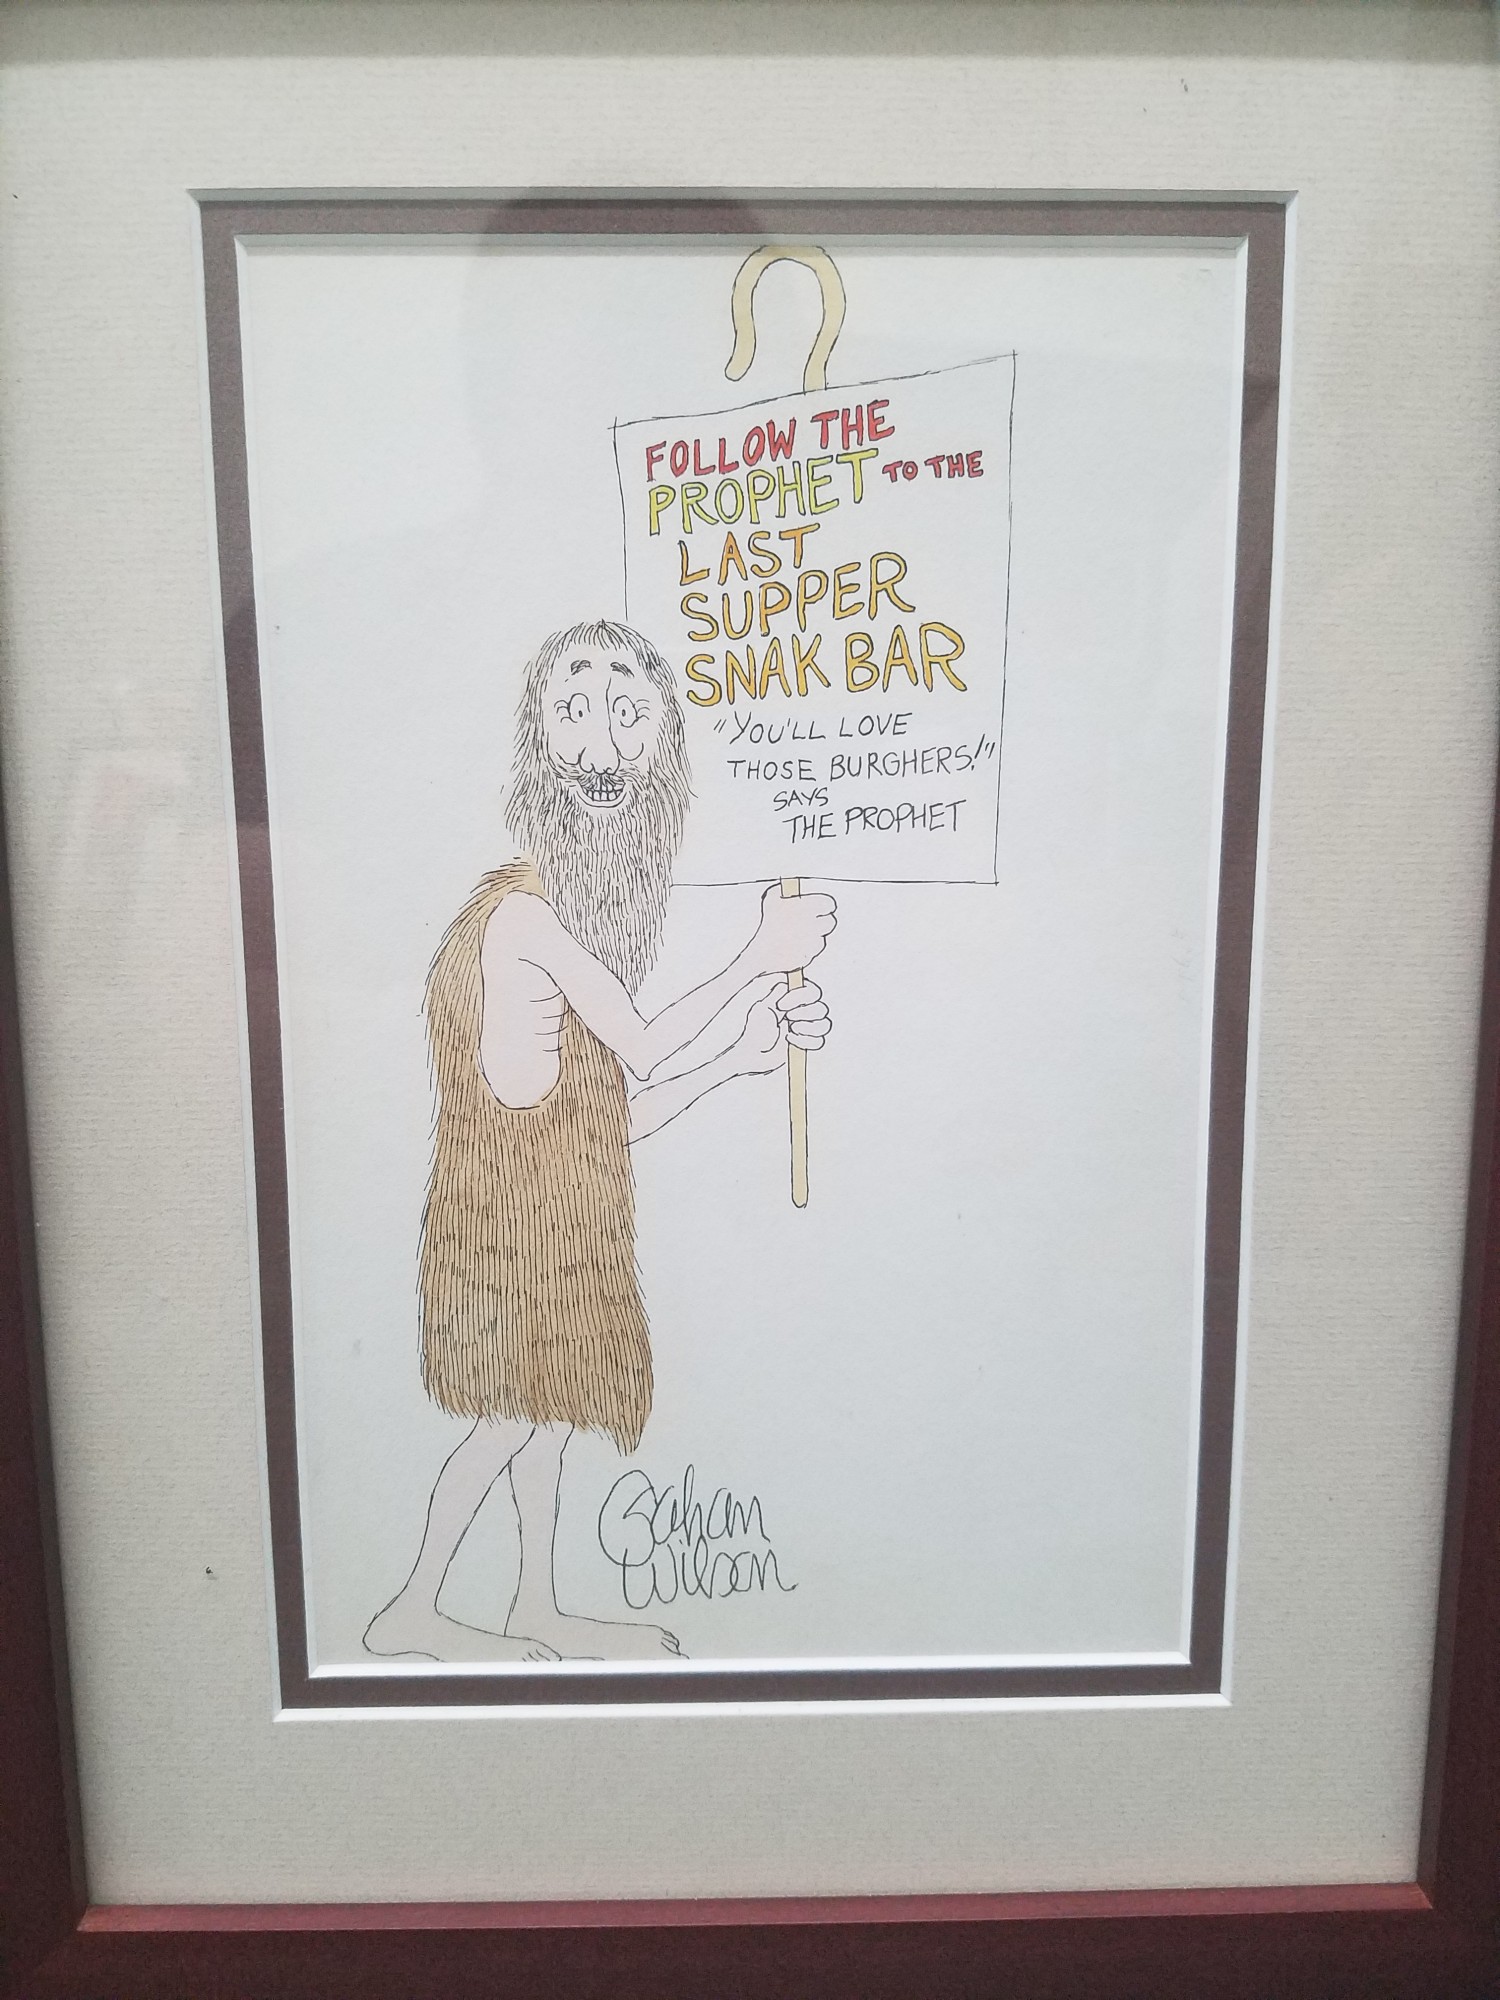 FOLLOW THE
PROPHET TO THE
LAST
SUPPER
SNAK BAR
"YOU'LL LOVE
THOSE BURGHERS!"
SAYS
THE PROPHET
Gahan
Wilson